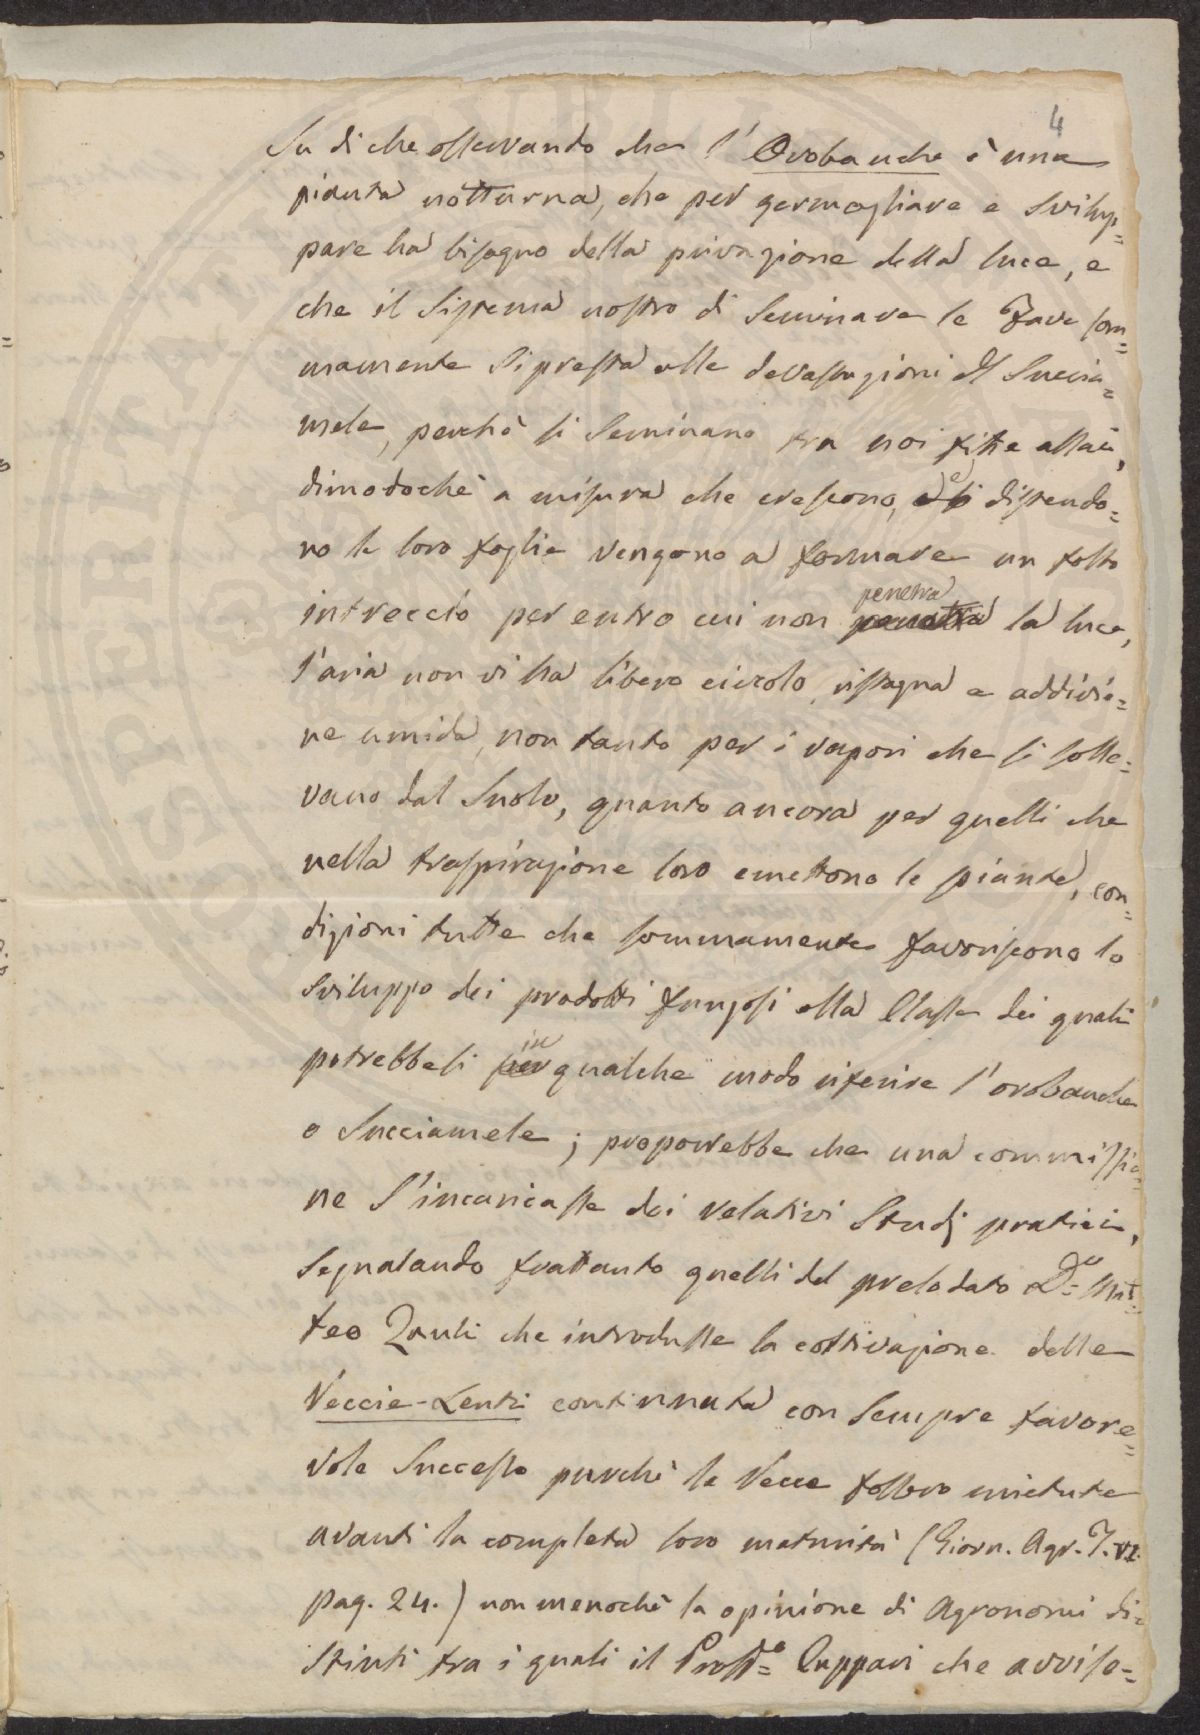 4
Su di che osservando che l'Orobanche è una
pianta notturna, che per germogliare e svilup=
pare ha bisogno della privazione della luce, e
che il sistema nostro di seminare le Fave som=
mamente si presta alle devastazioni del Succia=
mele, perché si seminano tra noi fitte assai,
dimodoché a misura che crescono, e distendo=
no le loro foglie vengono a formare un folto
intreccio per entro cui non penetra la luce,
l'aria non vi ha libero circolo, ristagna e addivie=
ne umida, non tanto per i vapori che si solle=
vano dal Suolo, quanto ancora per quelli che
nella traspirazione loro emettono le piante, con=
dizioni tutte che sommamente favoriscono lo
sviluppo dei prodotti fungosi alla Classe dei quali
potrebbesi in qualche modo riferire l'orobanche
o Succiamele; proporrebbe che una commissio=
ne s'incaricasse dei relativi Studj pratici,
segnalando frattanto quelli del prelodato Dre Mat=
teo Zauli che introdusse la coltivazione delle
Veccie-Lenti continuata con sempre favore=
vole Successo purché le Vecce fossero mietute
avanti la completa loro maturità (Giorn. Agr. T. VI.
pag. 24.) non menoché la opinione di Agronomi di=
stinti tra i quali il Professe Cuppari che avvise=